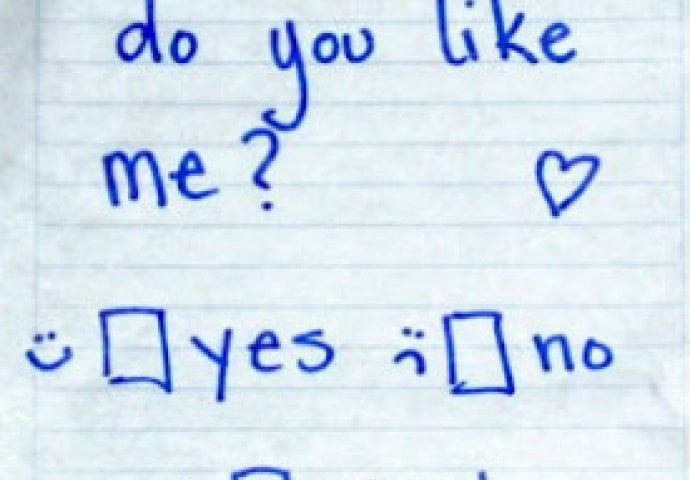 do you like
me? ♡
:) ☐ yes :( ☐ no